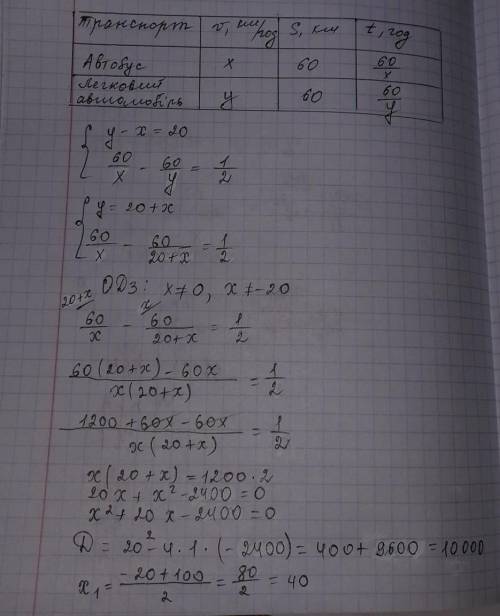 Транспорт v, км/год S, км t, год
Автобус x 60 60/x
Легковий автомобіль y 60 60/y
{ y - x = 20
60/x - 60/y = 1/2
{ y = 20 + x
60/x - 60/(20+x) = 1/2
ОДЗ: x ≠ 0, x ≠ -20
20+x x
60/x - 60/(20+x) = 1/2
(60(20+x) - 60x)/(x(20+x)) = 1/2
(1200 + 60x - 60x)/(x(20+x)) = 1/2
x(20+x) = 1200·2
20x + x² - 2400 = 0
x² + 20x - 2400 = 0
D = 20² - 4·1·(-2400) = 400 + 9600 = 10000
x₁ = (-20+100)/2 = 80/2 = 40